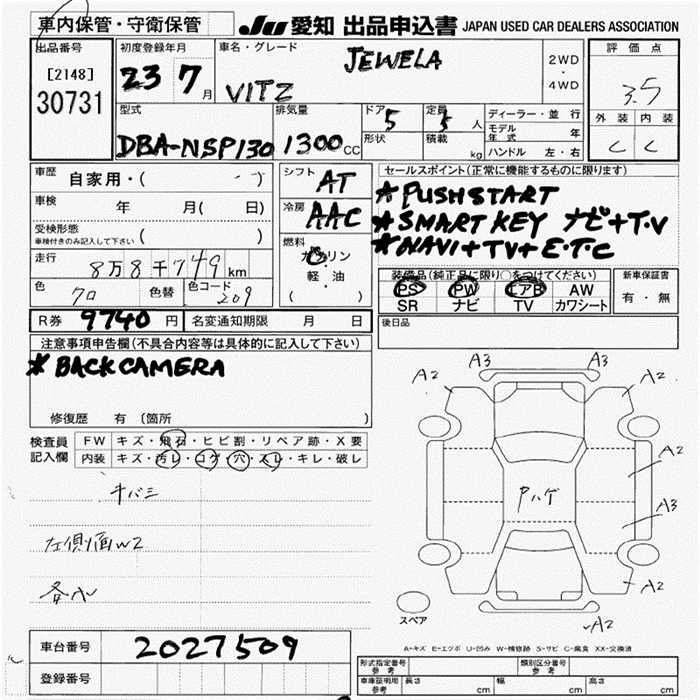 車内保管・守衛保管 JU 愛知 出品申込書 JAPAN USED CAR DEALERS ASSOCIATION
出品番号 初度登録年月 車名・グレード 評価点
[2148] 23 7月 VITZ JEWELA 2WD・4WD 3.5
30731
型式 排気量 ドア 定員 ディーラー・並行 外装 内装
DBA-NSP130 1300CC 5 5人 モデル年式 年 C C
形状 積載 kg ハンドル 左・右
車歴 自家用・( ) シフト AT セールスポイント(正常に機能するものに限ります)
車検 年 月( 日) 冷房 AAC *PUSHSTART
受検形態 ( ) *SMART KEY ナビ+T・V
車検付きのみ記入して下さい 燃料 ガソリン *NAVI+TV+E・T・C
走行 8万8千749km 軽・油
( ) 装備品(純正品に限り○をつけてください) 新車保証書
色 クロ 色替 色コード 209 PS PW エアB AW 有・無
SR ナビ TV カワシート
R券 9740円 名変通知期限 月 日 後日品
注意事項申告欄(不具合内容等は具体的に記入して下さい)
*BACK CAMERA
修復歴 有 (箇所 )
検査員記入欄 FW キズ・飛石・ヒビ割・リペア跡・X要
内装 キズ・汚レ・コゲ・穴・スレ・キレ・破レ
キバミ
左側面W2
A2 A3 A3 A2
A2
Pハゲ
A3
A2
A2
スペア
A-キズ E-エクボ U-凹み W-補修跡 S-サビ C-腐食 XX-交換済
車台番号 2027509
登録番号
形式指定番号 参考 類別区分番号 参考
車庫証明用 参考 長さ cm 幅 cm 高さ cm